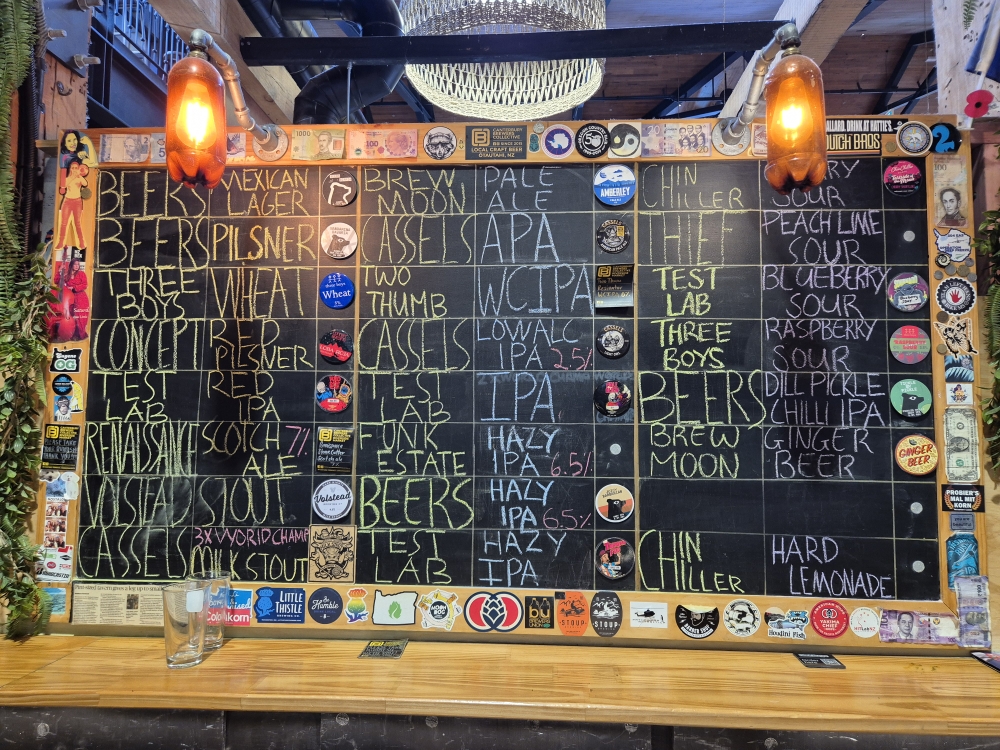 BEERS MEXICAN LAGER
BEERS PILSNER
THREE BOYS WHEAT
CONCEPT RED PILSNER
TEST LAB RED IPA
RENAISSANCE SCOTCH ALE 7%
VOLSTEAD STOUT
CASSELS 3X WORLD CHAMP MILK STOUT
BREW MOON PALE ALE
CASSELS APA
TWO THUMB WCIPA
CASSELS LOWALC IPA 2.5%
TEST LAB IPA
FUNK ESTATE HAZY IPA 6.5%
BEERS HAZY IPA 6.5%
TEST LAB HAZY IPA
CHIN CHILLER SOUR
THIEF PEACH LIME SOUR
TEST LAB BLUEBERRY SOUR
THREE BOYS RASPBERRY SOUR
BEERS DILL PICKLE CHILLI IPA
BREW MOON GINGER BEER
CHIN CHILLER HARD LEMONADE
CANTERBURY BREWERS COLLECTIVE
LOCAL CRAFT BEER
ŌTAUTAHI, NZ
AMBERLEY
Wheat
Volstead
CASSELS
GINGER BEER
Eugene
OG
PROBIER'S MAL MIT KORN
LITTLE THISTLE
& Humble
STOUP
STOUP
Houdini Fish
YAKIMA CHIEF
1000
100
2